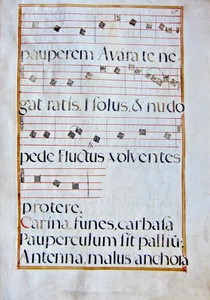 pauperem Avara te ne-
gat ratis, I solus, & nudo
pede Fluctus volventes
protere.
Carina, funes, carbasa
Pauperculum sit palliū;
Antenna, malus anchora